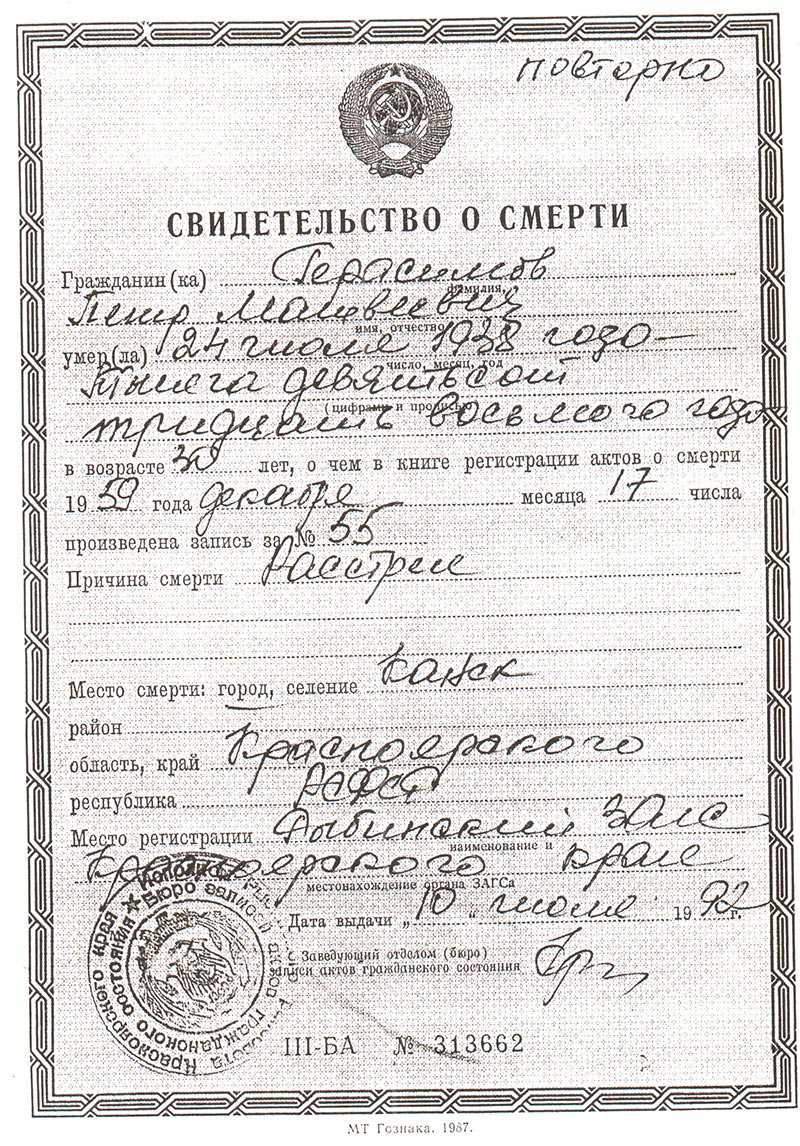 повторно
СВИДЕТЕЛЬСТВО О СМЕРТИ
Гражданин(ка) Герасимов
фамилия,
Петр Матвеевич
имя, отчество
умер(ла) 24 июля 1938 года —
число, месяц, год
тысяча девятьсот
(цифрами и прописью)
тридцать восьмого года
в возрасте 30 лет, о чем в книге регистрации актов о смерти
1959 года декабря месяца 17 числа
произведена запись за № 55
Причина смерти Расстрел
Место смерти: город, селение Канск
район
область, край Красноярского
республика РСФСР
Место регистрации Рыбинский ЗАГС
наименование и
Красноярского края
местонахождение органа ЗАГСа
Дата выдачи „10“ июля 1992г.
Заведующий отделом (бюро)
записи актов гражданского состояния
Красноярского края
Бюро записей актов гражданского состояния
III-БА № 313662
МТ Гознака. 1987.